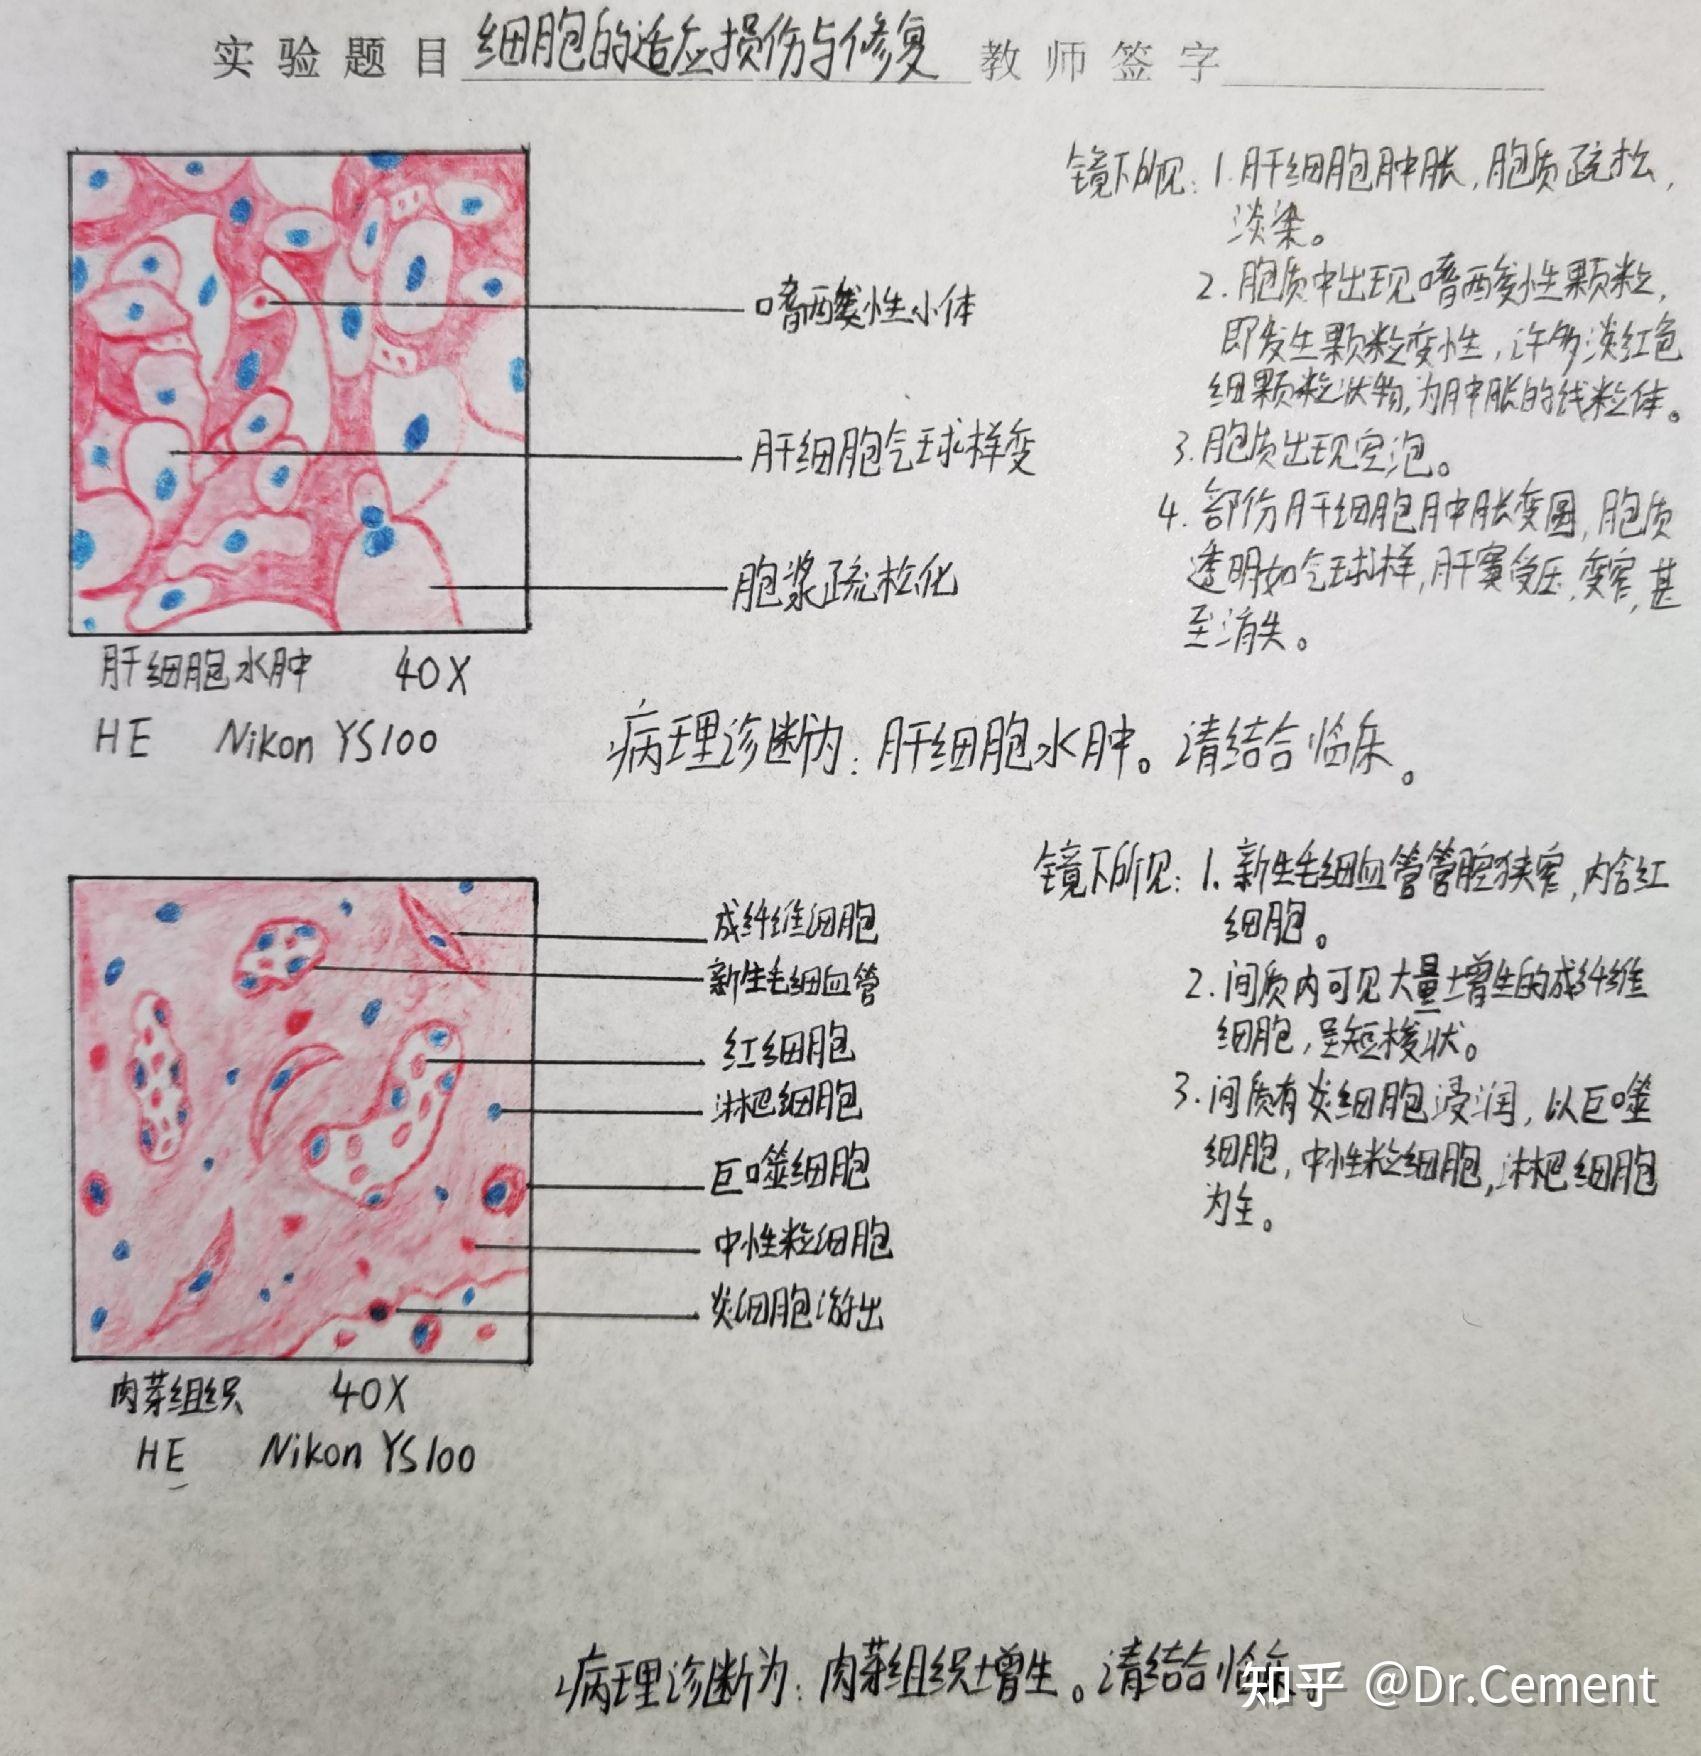 实验题目 细胞的适应损伤与修复 教师签字
嗜酸性小体
肝细胞气球样变
胞浆疏松化
肝细胞水肿 40X
HE Nikon YS100
镜下所见：1.肝细胞肿胀，胞质疏松，
淡染。
2.胞质中出现嗜酸性颗粒，
即发生颗粒变性，许多淡红色
细颗粒状物，为肿胀的线粒体。
3.胞质出现空泡。
4.部份肝细胞肿胀变圆，胞质
透明如气球样，肝窦受压，变窄，甚
至消失。
病理诊断为：肝细胞水肿。请结合临床。
成纤维细胞
新生毛细血管
红细胞
淋杷细胞
巨噬细胞
中性粒细胞
炎细胞游出
肉芽组织 40X
HE Nikon YS100
镜下所见：1.新生毛细血管管腔狭窄，内含红
细胞。
2.间质内可见大量增生的成纤维
细胞，呈短梭状。
3.间质有炎细胞浸润，以巨噬
细胞，中性粒细胞，淋杷细胞
为主。
病理诊断为：肉芽组织增生。请结合临床。
知乎 @Dr.Cement